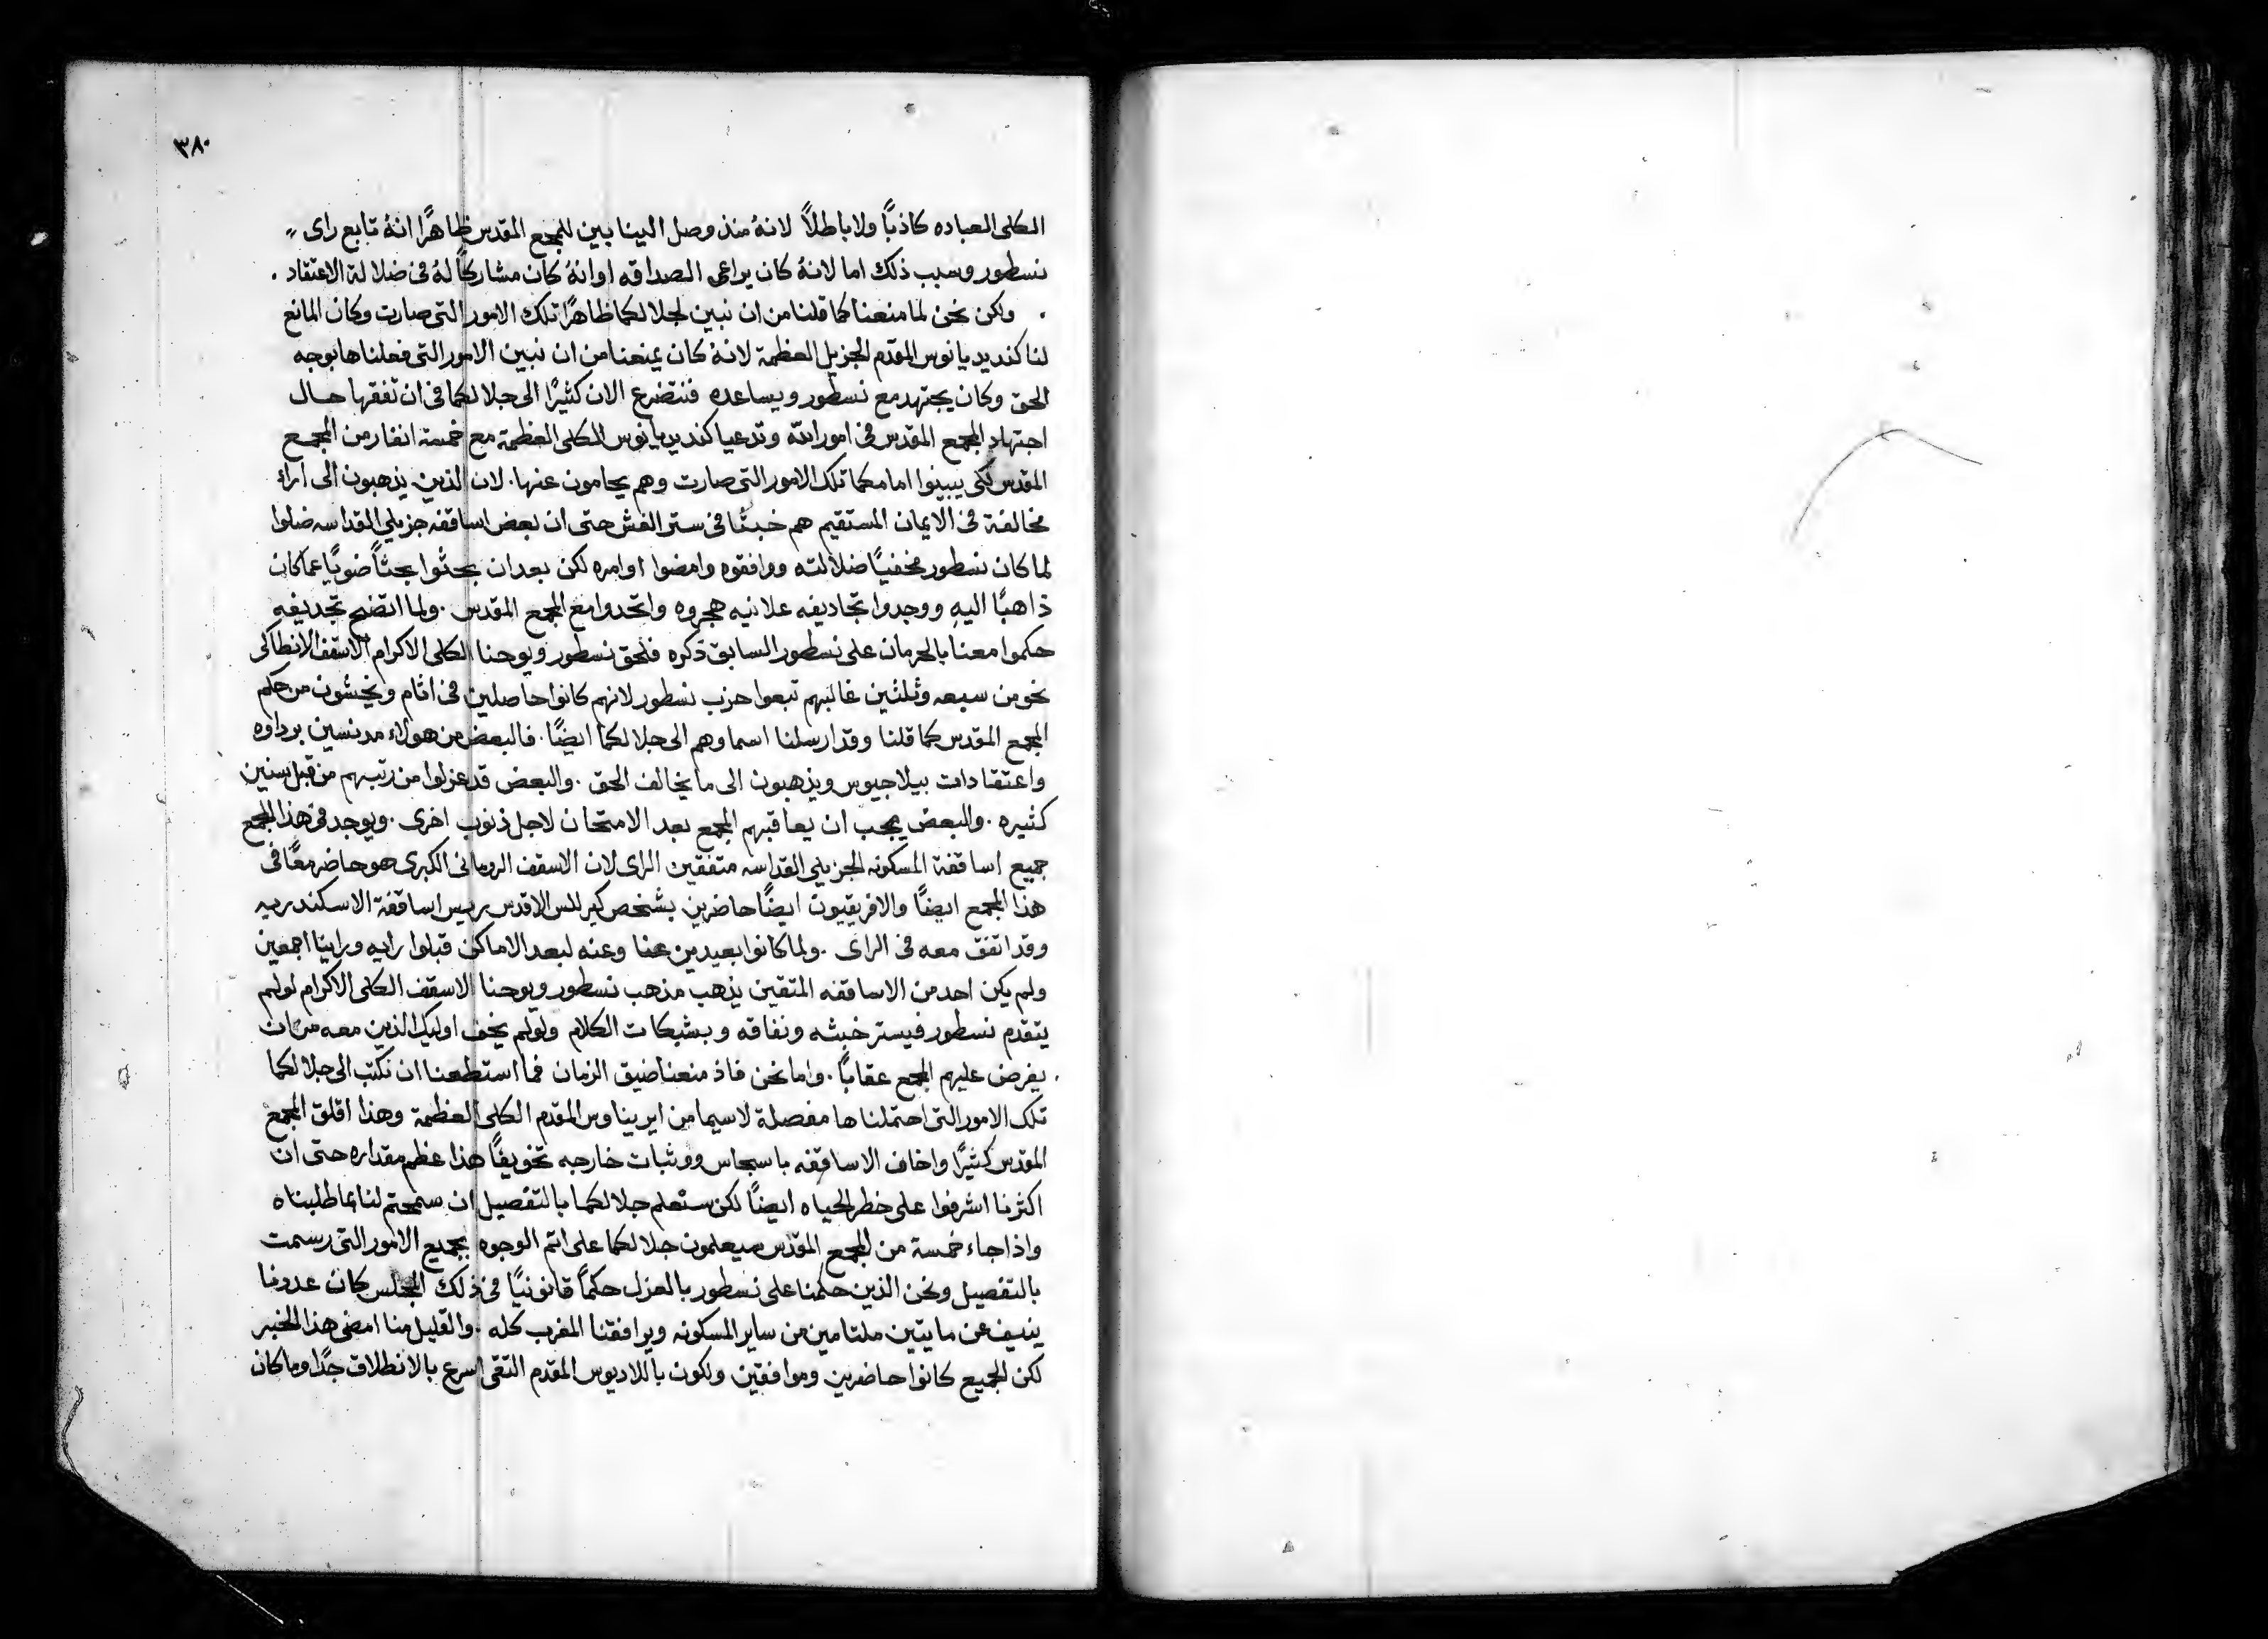 ٣٨٠
الكلى العباده كاذبًا ولا باطلًا لانهُ منذ وصل الينا بين للمجمع المقدس ظاهرًا انهُ تابع راى
نسطور وسبب ذلك اما لانهُ كان يراعى الصداقه او انهُ كان مشاركًا لهُ فى ضلالة الاعتقاد .
. ولكن نحن لما منعنا كما قلنا من ان نبين لجلالكما ظاهرًا تلك الامور التى صارت وكان المانع
لنا كنديديانوس المقدم الجزيل العظمة لانهُ كان يمنعنا من ان نبين الامور التى فعلناها بوجه
الحق وكان يجتهد مع نسطور ويساعده فنتضرع الان كثيرًا الى جلالكما فى ان تفقها حال
اجتهاد المجمع المقدس فى امور الله وتدعيا كنديديانوس الكلى العظمة مع خمسة انفار من المجمع
المقدس لكى يبينوا امامكما تلك الامور التى صارت وهم يحامون عنها . لان الذين يذهبون الى اراء
مخالفة فى الايمان المستقيم هم خبثًا فى ستر الغش حتى ان بعض اساقفه جزيلى القداسه ضلوا
لما كان نسطور مخفيًا ضلالته ووافقوه وامضوا اوامره لكن بعد ان بحثوا بحثًا ضويًا عما كان
ذاهبًا اليهِ ووجدوا تجاديفه علانيه هجروه واتحدوا مع المجمع المقدس . ولما اتضح تجديفه
حكموا معنا بالحرمان على نسطور السابق ذكره فلحق نسطور ويوحنا الكلى الاكرام الاسقف الانطاكى
نحو من سبعه وثلثين غالبهم تبعوا حزب نسطور لانهم كانوا حاصلين فى اثام ويخشون من حكم
المجمع المقدس كما قلنا وقد ارسلنا اسماوهم الى جلالكما ايضًا . فالبعض من هولاء مدنسين برداوه
واعتقادات بيلاجيوس ويذهبون الى ما يخالف الحق . والبعض قد عزلوا من رتبهم من قبل سنين
كثيره . والبعض يجب ان يعاقبهم المجمع بعد الامتحان لاجل ذنوب اخرى . ويوجد فى هذا المجمع
جميع اساقفة المسكونه الجزيلى القداسه متفقين الراى لان الاسقف الرومانى الكبرى هو حاضر معًا فى
هذا المجمع ايضًا والافريقيون ايضًا حاضرين بشخص كيرللس الاقدس رييس اساقفة الاسكندريه
وقد اتفق معه فى الراى . ولما كانوا بعيدين عنا وعنه لبعد الاماكن قبلوا رايه وراينا اجمعين
ولم يكن احد من الاساقفه المتقين يذهب مذهب نسطور ويوحنا الاسقف الكلى الاكرام لو لم
يتقدم نسطور فيستر خبثه ونفاقه وبشبكات الكلام ولو لم يخف اوليك الذين معه من ان
. يفرض عليهم المجمع عقابًا . واما نحن فاذ منعنا ضيق الزمان فما استطعنا ان نكتب الى جلالكما
تلك الامور التى احتملناها مفصلة لاسيما من ايريناوس المقدم الكلى العظمة وهذا اقلق المجمع
المقدس كثيرًا واخاف الاساقفه باسجاس ووثبات خارجه تخويفًا هذا عظم مقداره حتى ان
اكثرنا اشرفوا على خطر الحياه ايضًا لكن ستعلم جلالكما بالتفصيل ان سمحتم لنا بما طلبناه
واذا جاء خمسة من المجمع المقدس سيعلمون جلالكما على اتم الوجوه بجميع الامور التى رسمت
بالتفصيل ونحن الذين حكمنا على نسطور بالعزل حكمًا قانونيًا فى ذلك المجلس كان عددنا
ينيف عن مايتين ملتامين من ساير المسكونه ويرافقنا المغرب كله . والقليل منا امضى هذا الخبر
لكن الجميع كانوا حاضرين وموافقين ولكون باللاديوس المقدم التقى اسرع بالانطلاق جدًا وما كان